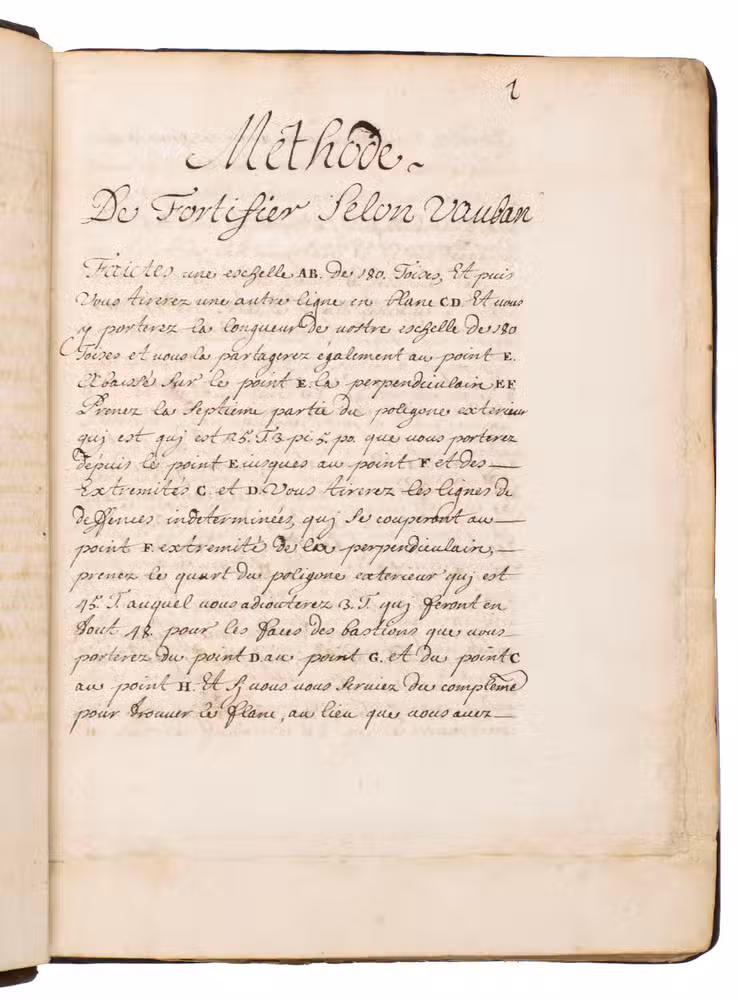 1
Methode
De Fortifier Selon Vauban
Faictes une eschelle AB. de 180. Toises, Et puis
Vous tirerez une autre ligne en blanc CD. Et vous
y porterez la longueur de vostre eschelle de 180
Toises et vous la partagerez également au point E.
Abaissé sur le point E. la perpendiculaire EF
Prenez la septieme partie du poligone exterieur
qui est qui est 25. T 3 pi. 5. po. que vous porterez
depuis le point E iusques au point F et des
Extremités C. et D. Vous tirerez les lignes de
deffences indeterminées, qui se couperont au
point F. extremité de la perpendiculaire,
prenez le quart du poligone exterieur qui est
45. T. auquel vous adiouterez 3. T. qui feront en
tout 48. pour les faces des bastions que vous
porterez du point D au point G. et du point C
au point H. Et si vous vous serviez du compleme
pour trouver le flanc, au lieu que vous avez